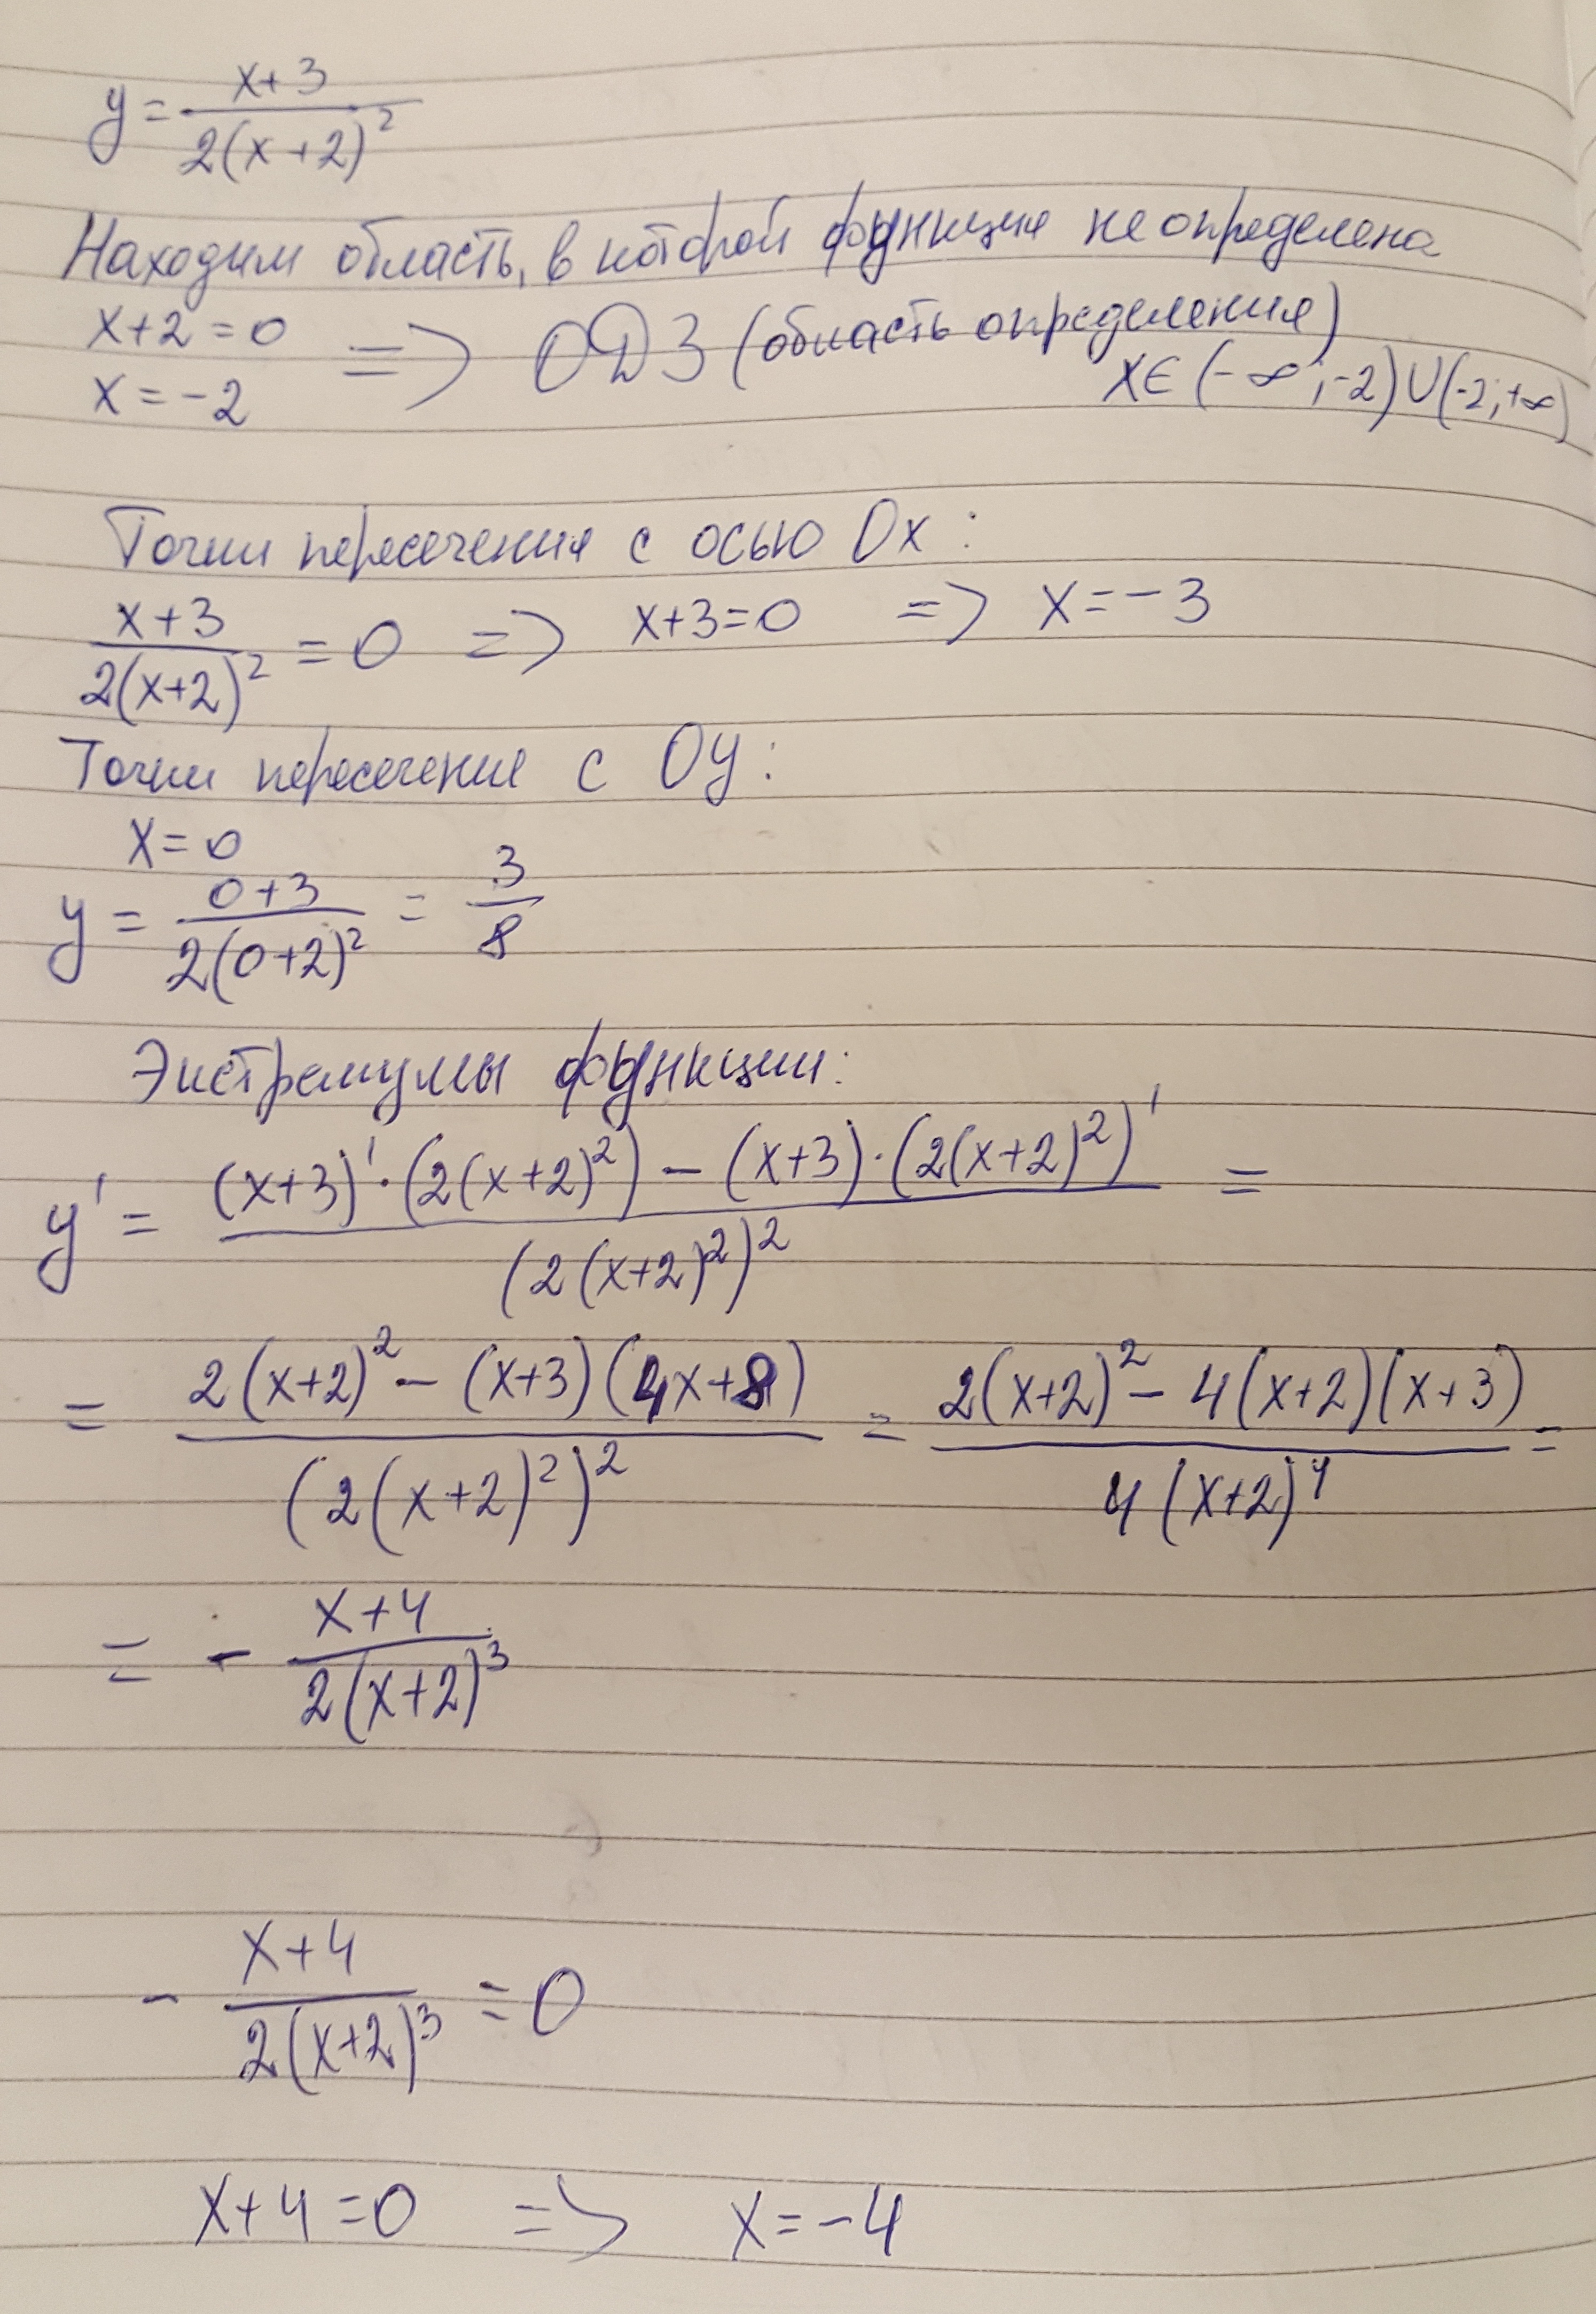 y = x+3 / 2(x+2)²
Находим область, в которой функция не определена
x+2=0 => ОДЗ (область определения)
x=-2 x∈(-∞;-2)∪(-2;+∞)
Точки пересечения с осью Ox:
x+3 / 2(x+2)² = 0 => x+3=0 => x=-3
Точки пересечение с Oy:
x=0
y = 0+3 / 2(0+2)² = 3/8
Экстремумы функции:
y' = (x+3)'·(2(x+2)²) - (x+3)·(2(x+2)²)' / (2(x+2)²)² =
= 2(x+2)² - (x+3)(4x+8) / (2(x+2)²)² = 2(x+2)² - 4(x+2)(x+3) / 4(x+2)⁴ =
= - x+4 / 2(x+2)³
- x+4 / 2(x+2)³ = 0
x+4=0 => x=-4